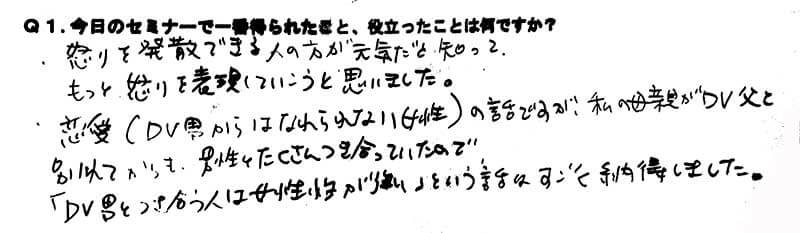 Q1.今日のセミナーで一番得られたこと、役立ったことは何ですか?
・怒りを発散できる人の方が元気だと知って、
もっと怒りを表現していこうと思いました。
・恋愛(DV男からはなれられない女性)の話ですが、私の母親がDV父と
別れてからも、男性とたくさんつき合っていたので
「DV男とつき合う人は女性性が強い」という話はすごく納得しました。